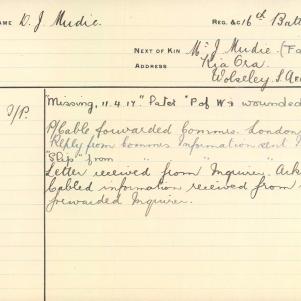 NAME D. J. Mudie. REG. &c 16th Batt
NEXT OF KIN Mr J Mudie (Fa
ADDRESS Kia Ora.
Wolseley S. A
I/P. "Missing, 11.4.17" Later "P of W & wounded
P/Cable forwarded Comms. London
Reply from Comms Information sent
"Slip" from " " "
Letter received from Inquirer.
Cabled information received from
forwarded Inquirer.